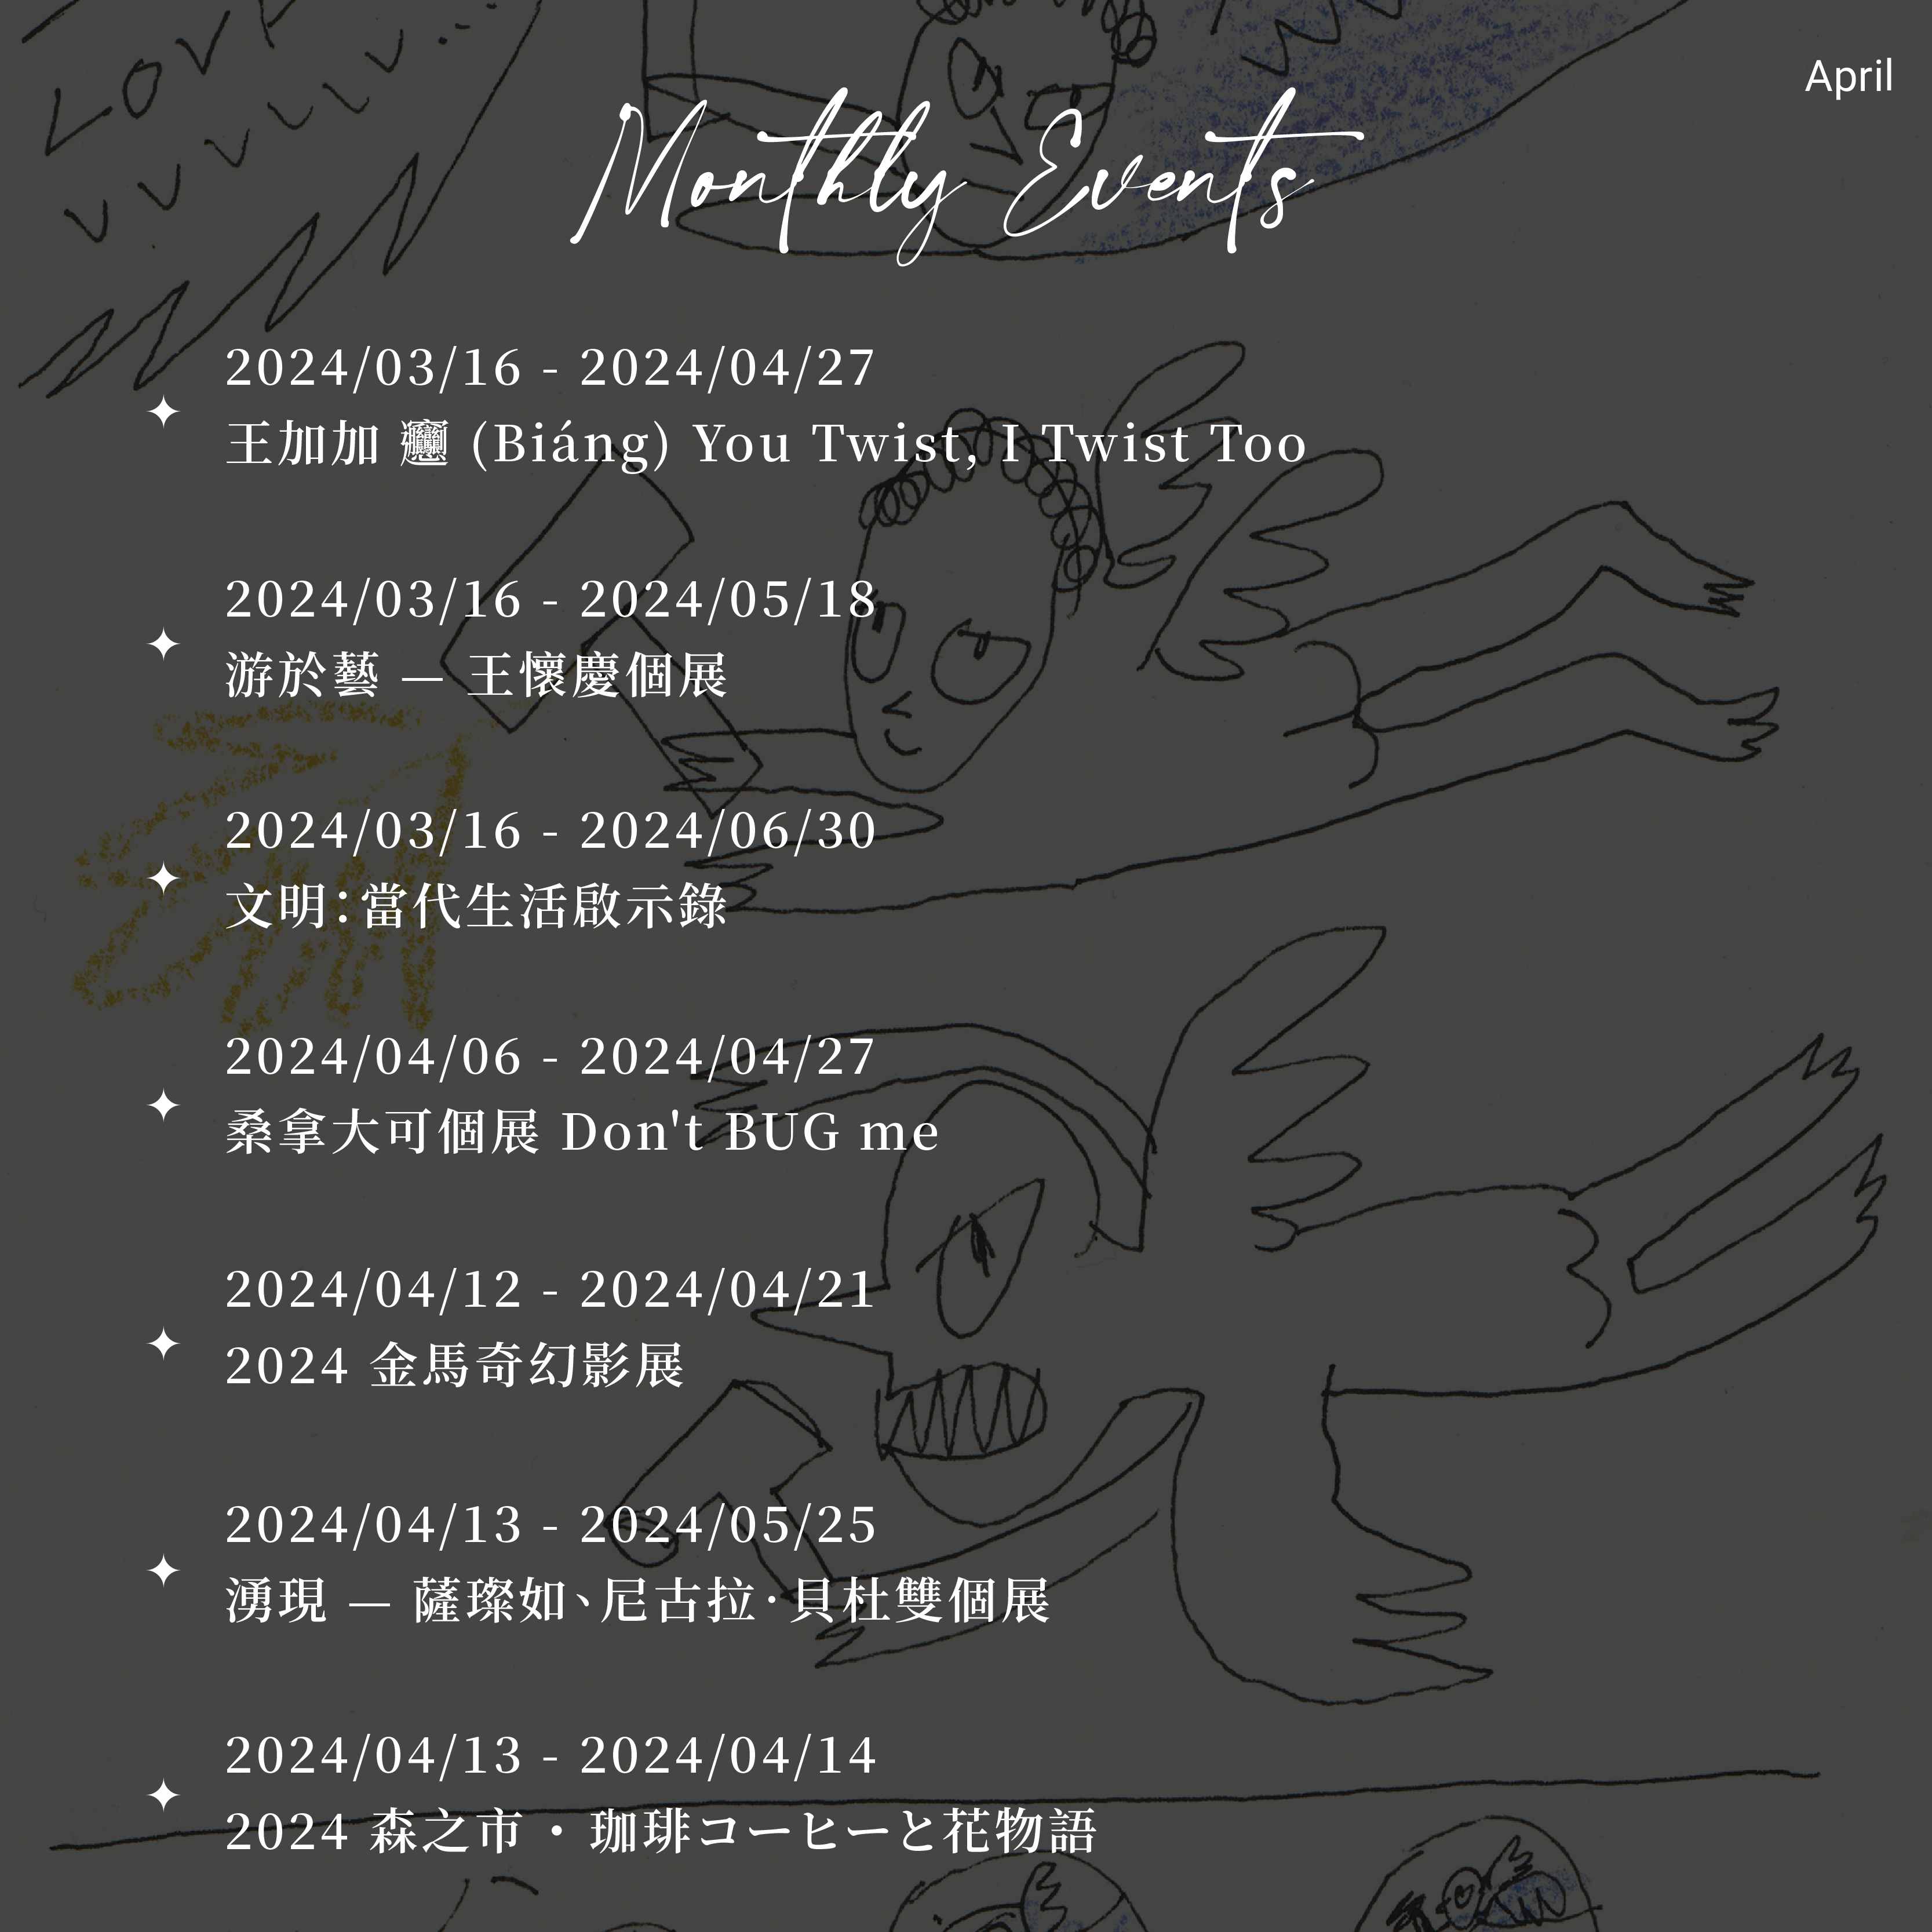 LOV
April
Monthly Events
2024/03/16 - 2024/04/27
王加加 𰻞 (Biáng) You Twist, I Twist Too
2024/03/16 - 2024/05/18
游於藝 — 王懷慶個展
2024/03/16 - 2024/06/30
文明：當代生活啟示錄
2024/04/06 - 2024/04/27
桑拿大可個展 Don't BUG me
2024/04/12 - 2024/04/21
2024 金馬奇幻影展
2024/04/13 - 2024/05/25
湧現 — 薩璨如、尼古拉·貝杜雙個展
2024/04/13 - 2024/04/14
2024 森之市・珈琲コーヒーと花物語